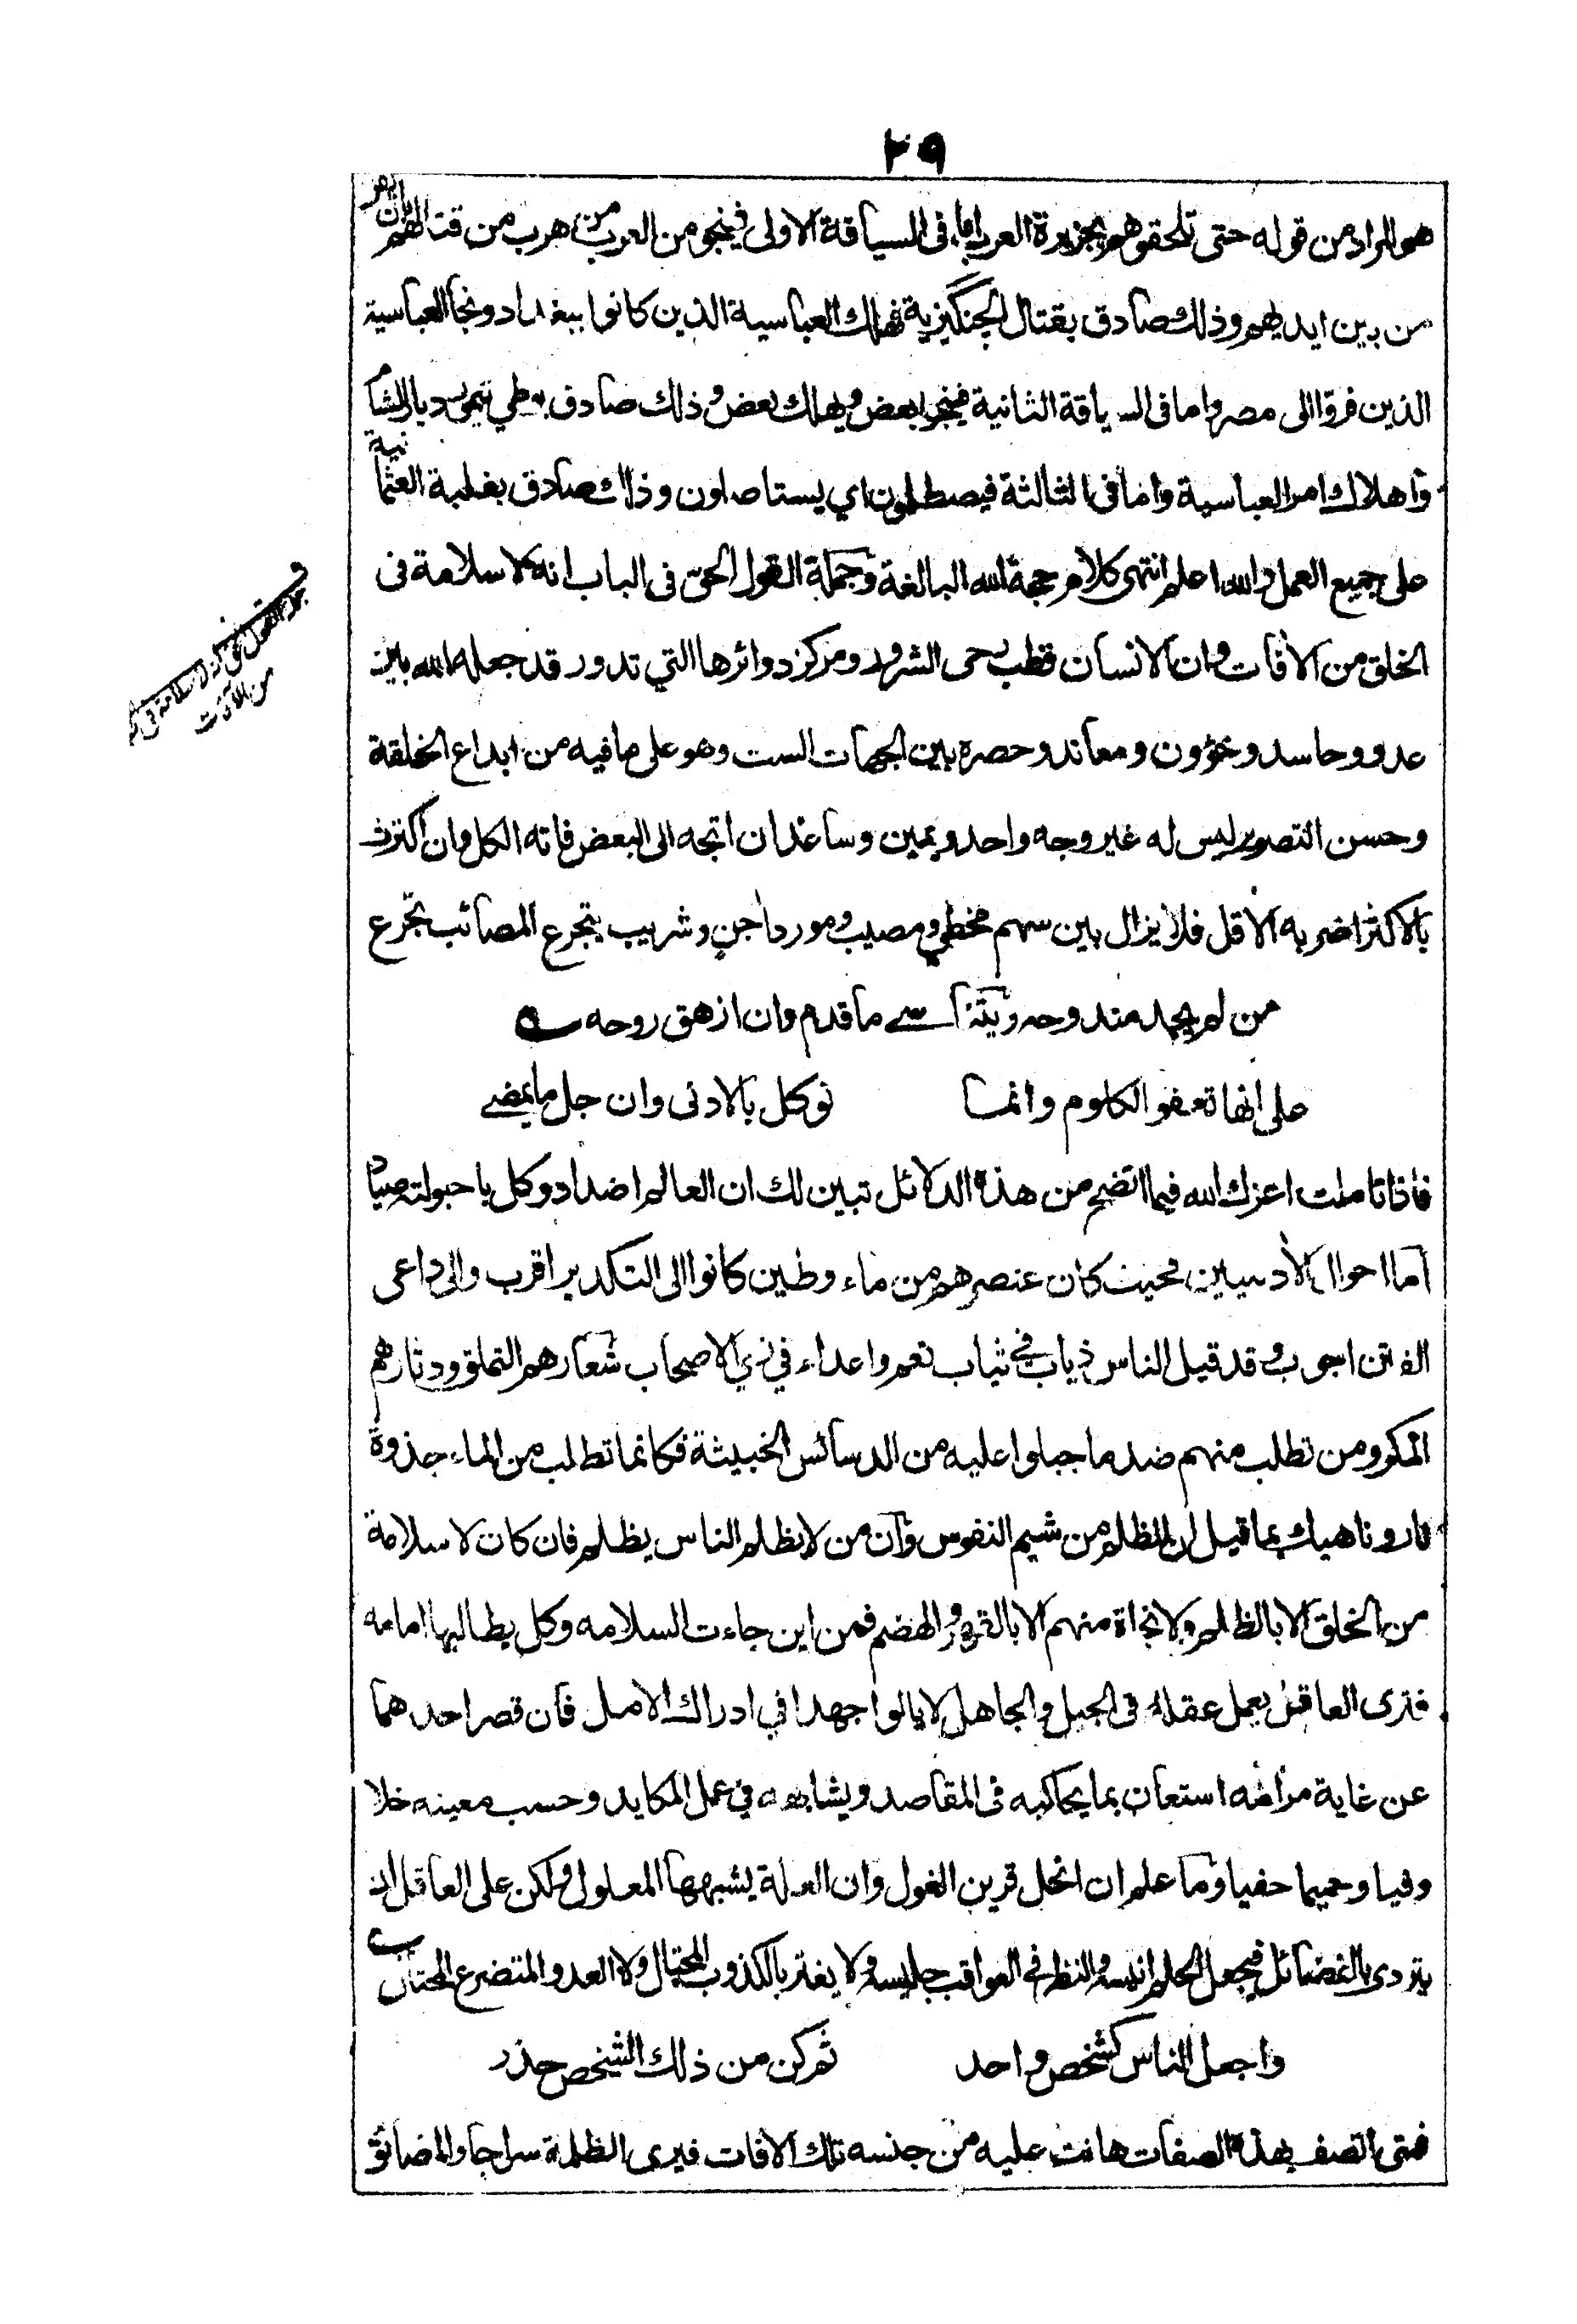 ٢٩
هو المراد من قوله حتى تلحقوهم بجزيرة العرب اما فى السياقة الاولى فينجو من العرب من هرب من قتالهم بان يفر
من بين ايديهم وذلك صادق بقتال الجنگيزية فهلك العباسية الذين كانوا ببغداد ونجا العباسية
الذين فروا الى مصر واما فى السياقة الثانية فينجو بعض ويهلك بعض وذلك صادق بوطي تيمور ديار الشام
واهلاك امر العباسية واما فى الثالثة فيصطلمون اي يستاصلون وذلك صادق بغلبة العثمانية
على جميع العمل والله اعلم انتهى كلام حجة الله البالغة وجملة القول الحق فى الباب انه لا سلامة فى
الخلق من الافات وان الانسان قطب رحى الشرور ومركز دوائرها التي تدور قد جعله الله بين
عدو وحاسد وخؤون ومعاند وحصره بين الجهات الست وهو على ما فيه من ابداع الخلقة
وحسن التصوير ليس له غير وجه واحد ويمين وساعد ان اتجه الى البعض فاته الكل وان اكترث
بالاكثر اضر به الاقل فلا يزال بين سهم مخطي ومصيب ومورد اجن وشريب يتجرع المصائب تجرع
من لم يجد مندوحه ويتناسى ما قدم وان ازهق روحه
على انها تعفو الكلوم وانما نوكل بالادنى وان جل ما يمضے
فاذا تاملت اعزك الله فيما اتضح من هذه الدلائل تبين لك ان العالم اضداد وكل با حبولته صياد
اما احوال الادميين فحيث كان عنصرهم من ماء وطين كانوا الى التكدير اقرب والى داعى
الفتن اجوب وقد قيل الناس ذياب فے ثياب نعم واعداء في زي الاصحاب شعارهم التملق ودثارهم
المكر ومن تطلب منهم ضد ما جبلوا عليه من الدسائس الخبيثة فكانما تطلب من الماء جذوة
نار وناهيك بما قيل ان الظلم من شيم النفوس وان من لا يظلم الناس يظلم فان كان لا سلامة
من الخلق الا بالظلم ولا نجاة منهم الا بالقهر والهضم فمن اين جاءت السلامه وكل يطالبها امامه
فترى العاقل يعمل عقله فى الحيل والجاهل لا يالوا جهدا في ادراك الامل فان قصر احدهما
عن غاية مرامه استعان بما يحاكيه فى المقاصد ويشابهه في عمل المكايد وحسب معينه خلا
وفيا وحميما حفيا وما علم ان الخل قرين الغول وان العلة يشبهها المعلول ولكن على العاقل ان
يتردى بالفضائل فيجعل الحلم انيسه والنظر فے العواقب جليسه ولا يغتر بالكذوب المحتال ولا العدو المتضرع المحتال
واجعل الناس كشخص واحد ثم كن من ذلك الشخص حذر
فمتى اتصف بهذه الصفات هانت عليه من جنسه تلك الافات فيرى الظلمة سراجا والمضائق
من الآفات